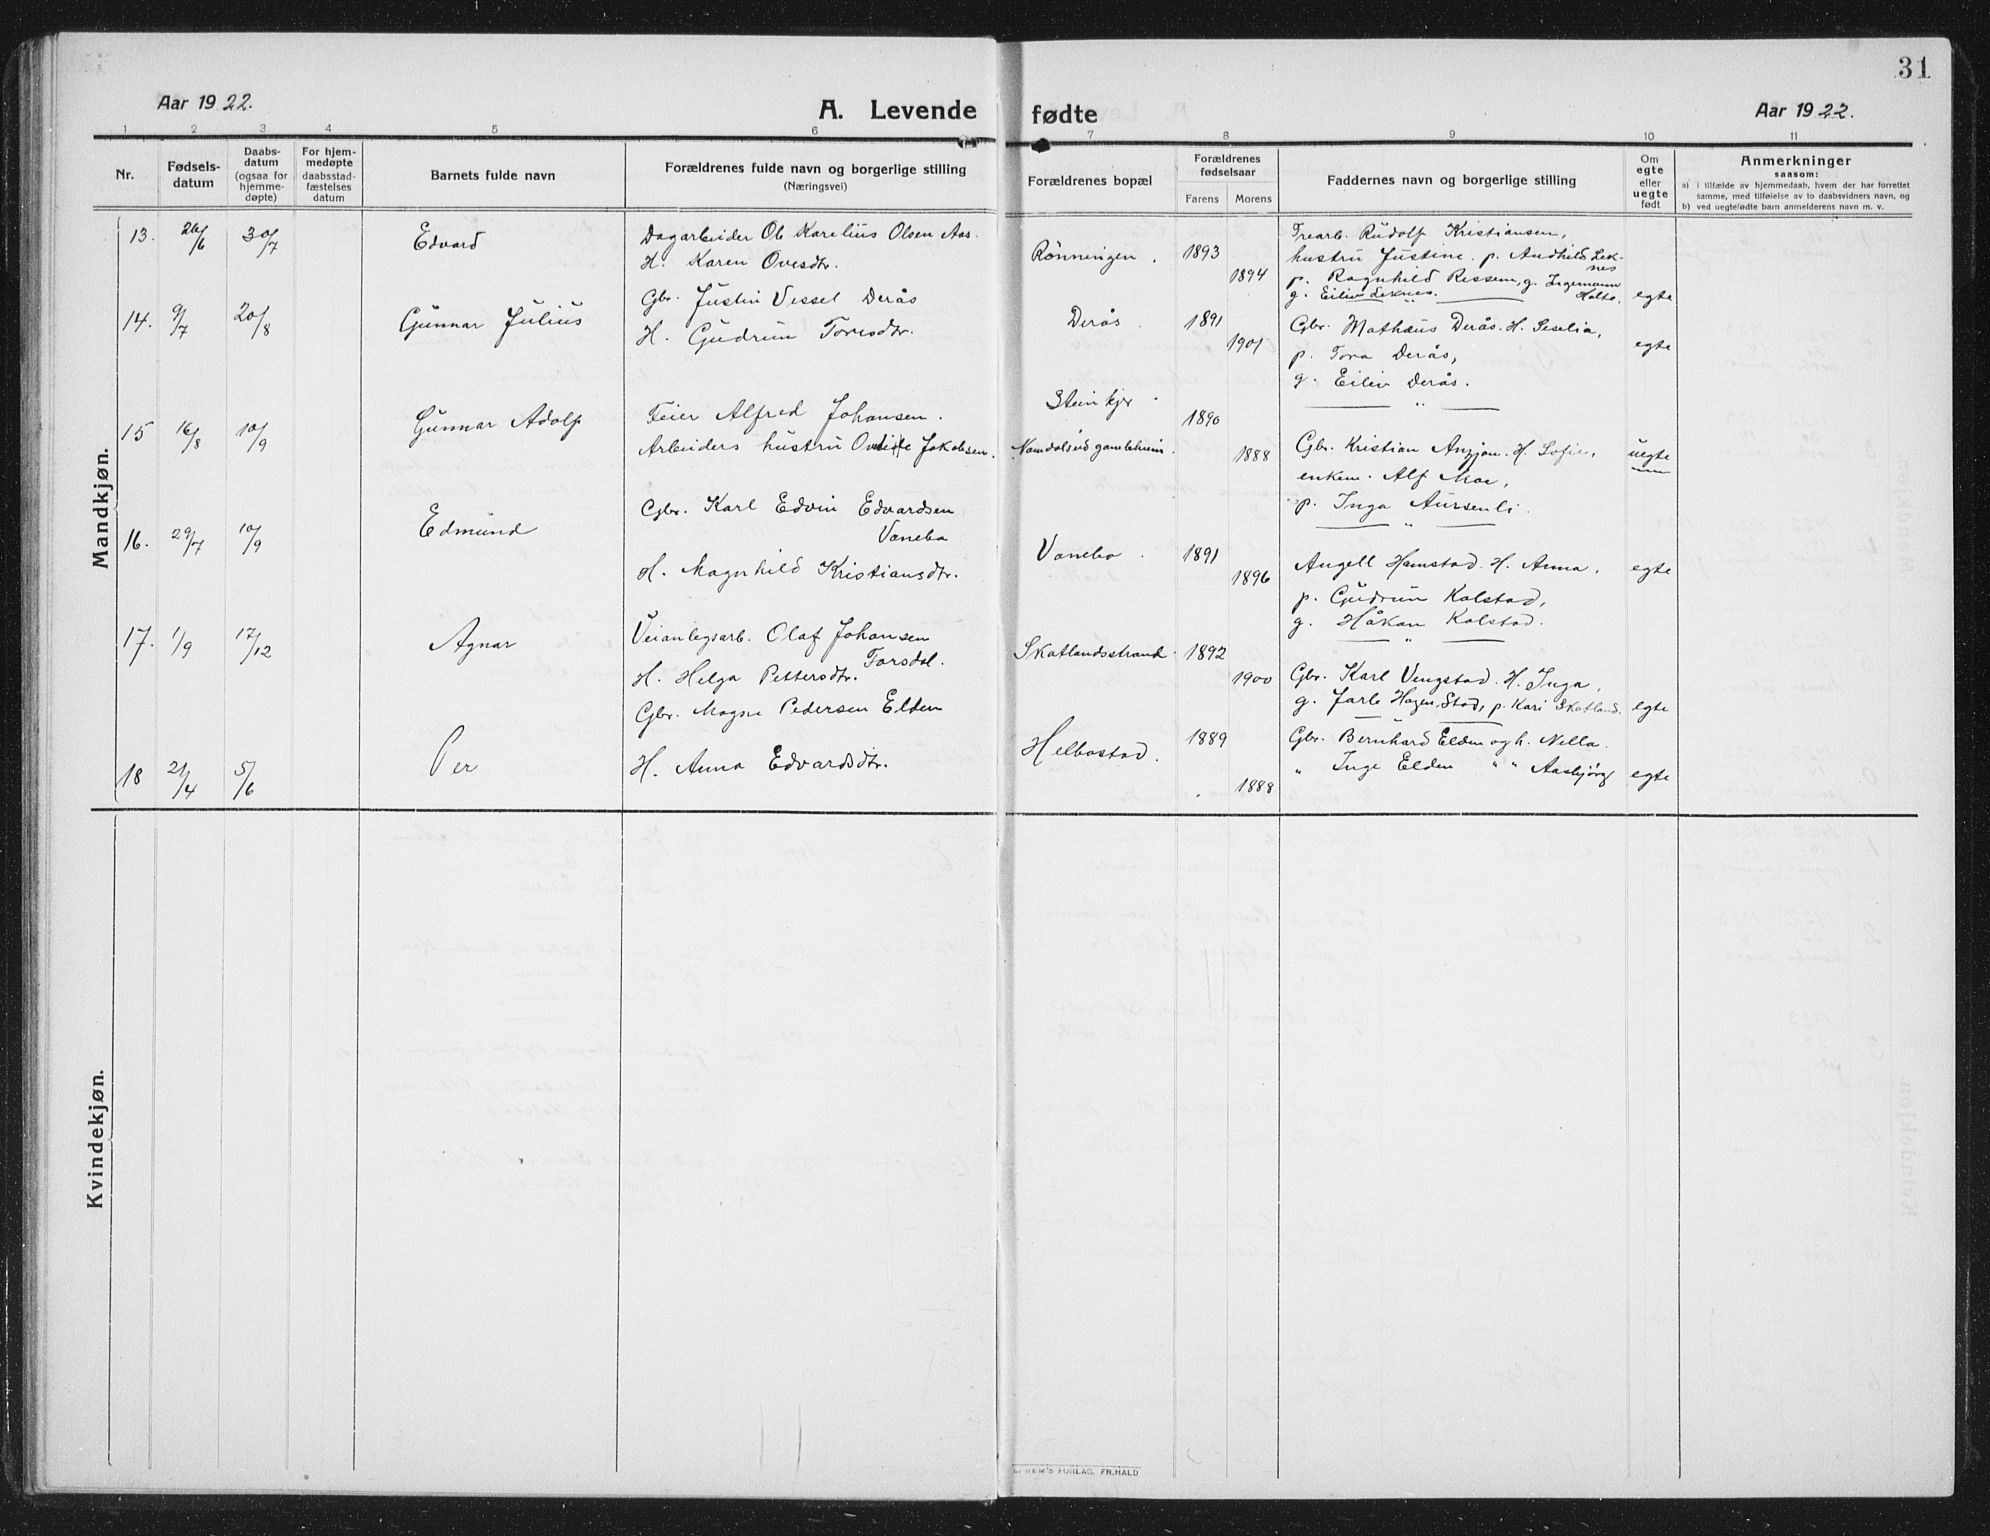 31
Aar 1922.
A. Levende
fødte
Aar 1922.
1 2 3 4 5 6 7 8 9 10 11
Nr.
Fødsels-
datum
Daabs-
datum
(ogsaa for
hjemme-
døpte)
For hjem-
medøpte
daabsstad-
fæstelses
datum
Barnets fulde navn
Forældrenes fulde navn og borgerlige stilling
(Næringsvei)
Forældrenes bopæl
Forældrenes
fødselsaar
Farens Morens
Faddernes navn og borgerlige stilling
Om
egte
eller
uegte
født
Anmerkninger
saasom:
a) i tilfælde av hjemmedaab, hvem der har forrettet
samme, med tilføielse av to daabsvidners navn, og
b) ved uegtefødte barn anmelderens navn m. v.
Mandkjøn.
13. 26/6 30/7 Edvard
Dagarbeider Ole Karelius Olsen Aas.
H. Karen Ovesdtr.
Rønningen. 1893
1894
Trearb. Rudolf Kristiansen,
hustru Justine. p. Audhild Lek-
nes
p. Ragnhild Rissem, g. Ingemann
Holte.
g. Eiliv Leknes.
egte
14. 9/7 20/8 Gunnar Julius
Gbr. Justin Vessel Derås
H. Gudrun Toresdtr.
Derås. 1891
1901
Gbr. Mathæus Derås. H. Seselia,
p. Tora Derås,
g. Eiliv Derås.
egte
15 16/8 10/9 Gunnar Adolf
Feier Alfred Johansen.
Arbeiders hustru Ovidie Jakobsen.
Steinkjer
Namdalseid gamleheim.
1890
1888
Gbr. Kristian Anzjøn. H. Sofie,
enkem. Alf Moe,
p. Inga Aursenli.
uegte
16. 29/7 10/9 Edmund
Gbr. Karl Edvin Edvardsen
Vanebo
H. Magnhild Kristiansdtr.
Vanebo. 1891
1896
Angell Hamstad. H. Anna,
p. Gudrun Kolstad,
g. Håkon Kolstad.
egte
17. 1/9 17/12 Agnar
Veianlegsarb. Olaf Johansen
Farsdal.
H. Helga Pettersdtr.
Skatlandsstrand. 1892
1900
Gbr. Karl Vengstad. H. Inga,
g. Jarle Hagen, Stad, p. Kari Skatland.
egte
18 21/4 5/6 Per
Gbr. Magne Pedersen Elden
H. Anna Edvardsdtr.
Helbostad. 1889
1888
Gbr. Bernhard Elden og h. Nella.
" Inge Elden " " Aasbjørg
egte
Kvindekjøn.
FORLAG, FR.HALD